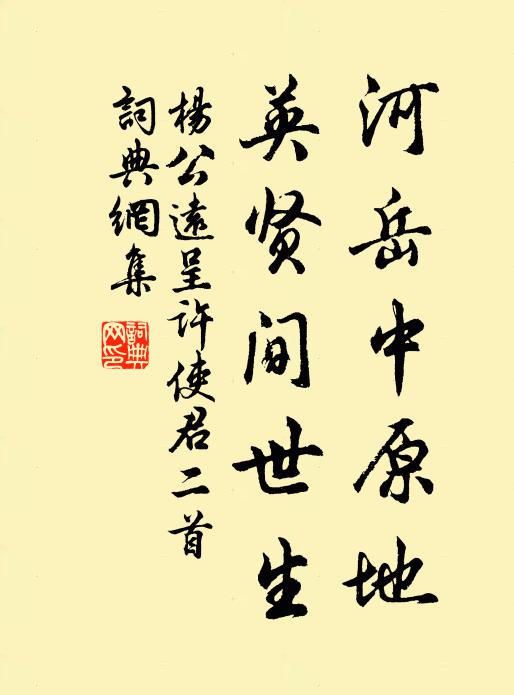 河岳中原地
英贤间世生
楊公遠呈許使君二首
詞典網集
詞典網印